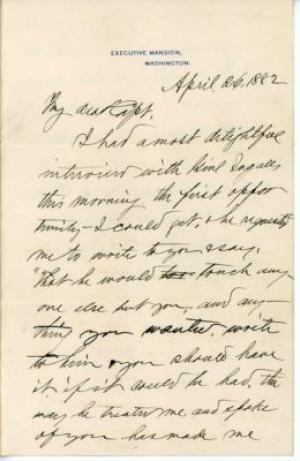 EXECUTIVE MANSION,
WASHINGTON.
April 26. 1882
My dear Capt,
I had a most delightful
interview with Genl Ingalls
this morning, the first oppor
tunity I could get, & he requested
me to write to you & say,
"that he would touch any-
one else but you, and any-
thing you wanted, write
to him & you should have
it if it could be had, the
way he treated me, and spoke
of you has made me